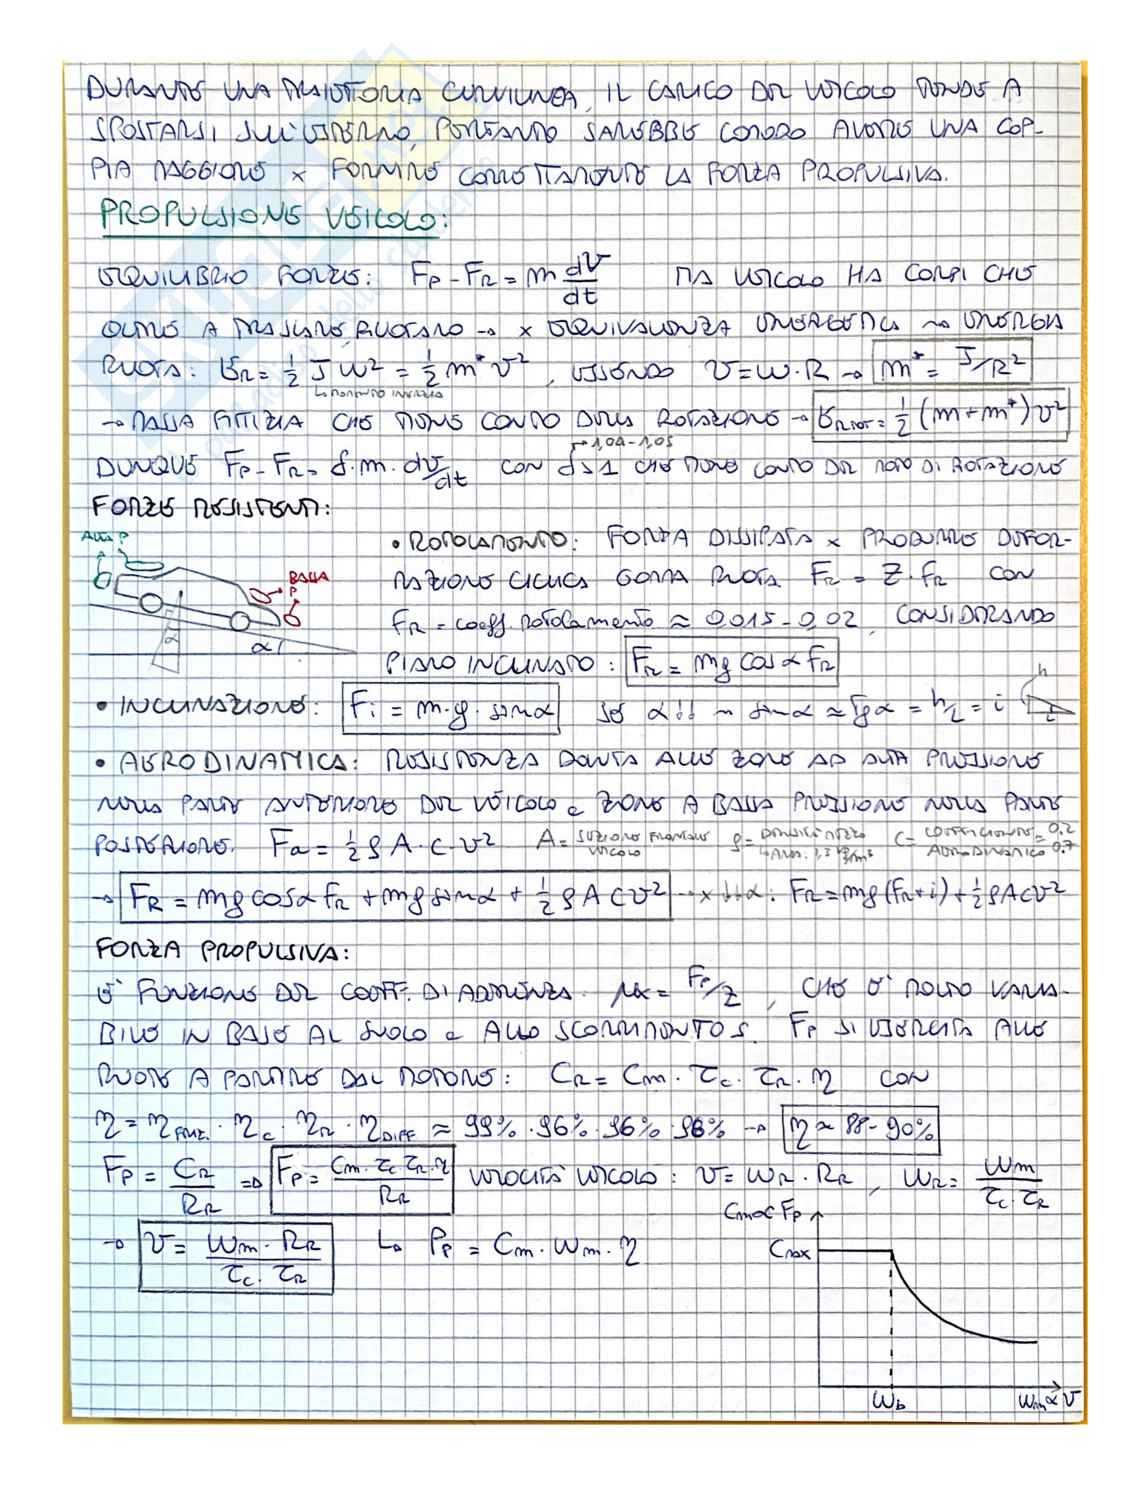 DURANTE UNA TRAIETTORIA CURVILINEA, IL CARICO DEL VEICOLO TENDE A
SPOSTARSI SULL'ESTERNO, PERTANTO SAREBBE COMODO AVERE UNA COP-
PIA MAGGIORE x FORNIRE CORRETTAMENTE LA FORZA PROPULSIVA.
PROPULSIONE VEICOLO:
EQUILIBRIO FORZE: Fp - FR = m dv/dt MA VEICOLO HA CORPI CHE
OLTRE A TRASLARE, RUOTANO → x EQUIVALENZA ENERGETICA → ENERGIA
RUOTA: ER = 1/2 J ω² = 1/2 m* v², ESSENDO v = ω · R → m* = J/R²
↳ MOMENTO INERZIA
→ MASSA FITTIZIA CHE TIENE CONTO DELLA ROTAZIONE → ER TOT = 1/2 (m + m*) v²
→ 1,04 - 1,05
DUNQUE Fp - FR = δ · m · dv/dt CON δ > 1 CHE TIENE CONTO DEL MOTO DI ROTAZIONE
FORZE RESISTENTI:
ALTA P
BASSA P
α
α
• ROTOLAMENTO: FORZA DISSIPATA x PRODURRE DEFOR-
MAZIONE CICLICA GOMMA RUOTA. FR = Z · fR CON
fR = coeff. rotolamento ≈ 0,015 - 0,02. CONSIDERANDO
PIANO INCLINATO: FR = mg cos α fR
• INCLINAZIONE: Fi = m · g · sin α SE α ↓↓ → sin α ≈ tg α = h/L = i
h
L
• AERODINAMICA: RESISTENZA DOVUTA ALLE ZONE AD ALTA PRESSIONE
NELLA PARTE ANTERIORE DEL VEICOLO e ZONE A BASSA PRESSIONE NELLA PARTE
POSTERIORE. Fa = 1/2 ρ A · c · v² A = SEZIONE FRONTALE VEICOLO ρ = DENSITÀ MEZZO ↳ ARIA: 1,3 kg/m³ C = COEFFICIENTE AERODINAMICO = 0.2 0.7
→ FR = mg cos α fR + mg sin α + 1/2 ρ A c v² → x ↓↓α: FR = mg (fR + i) + 1/2 ρ A c v²
FORZA PROPULSIVA:
E' FUNZIONE DEL COEFF. DI ADERENZA. μx = Fp/Z, CHE E' MOLTO VARIA-
BILE IN BASE AL SUOLO e ALLO SCORRIMENTO S. Fp SI ESERCITA ALLE
RUOTE A PARTIRE DAL MOTORE: CR = Cm · τc · τR · η CON
η = ηFRIZ. · ηc · ηR · ηDIFF ≈ 99% · 96% · 96% · 96% → η ≈ 88 - 90%
Fp = CR/RR ⇒ Fp = Cm · τc τR · η / RR VELOCITÀ VEICOLO: v = ωR · RR, ωR = ωm / τc · τR
→ v = ωm · RR / τc · τR ↳ Pp = Cm · ωm · η
Cm ∝ Fp
Cmax
ωb
ωm ∝ v